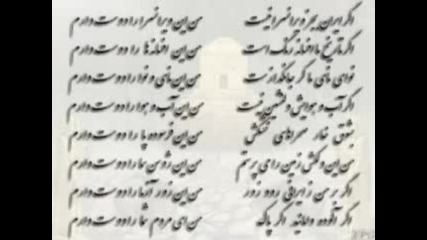 اگر ایران بجز ویرانسرا نیست من این ویرانسرا را دوست دارم
اگر تاریخ ما افسانه رنگ است من این افسانه ها را دوست دارم
نوای نای ما گر جانگداز است من این نای و نوا را دوست دارم
اگر آب و هوایش دلنشین نیست من این آب و هوا را دوست دارم
بشوق خار صحراهای خشکش من این فرسوده پا را دوست دارم
من این دلکش زمین را می پرستم من این روشن سما را دوست دارم
اگر بر من ز ایرانی رود زور من این زور آزما را دوست دارم
اگر آلوده دامانید اگر پاک من ای مردم شما را دوست دارم